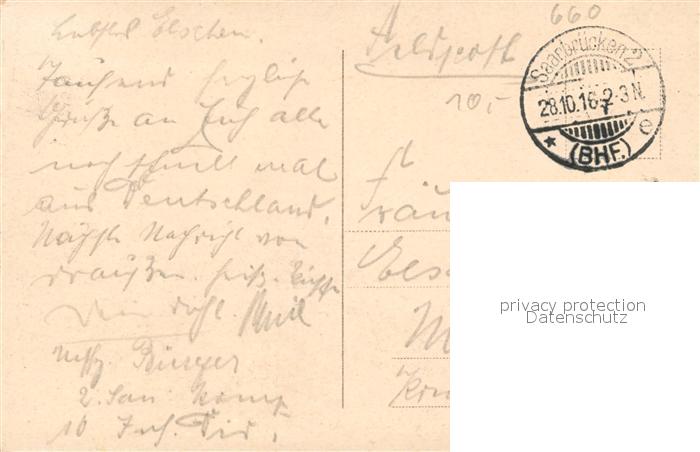 Liebstes Elschen.
Tausend herzliche
Grüße an Euch alle
noch schnell mal
aus Deutschland.
Nächste Nachricht von
draußen. herzl. Küsse
Dein
Uffz. Burger
2. San Komp
10 Inf. Div.
660
Feldpost
10,-
Saarbrücken 2
28.10.16. 2-3 N.
* (BHF.) e
Fräu
Elsc
M
privacy protection
Datenschutz